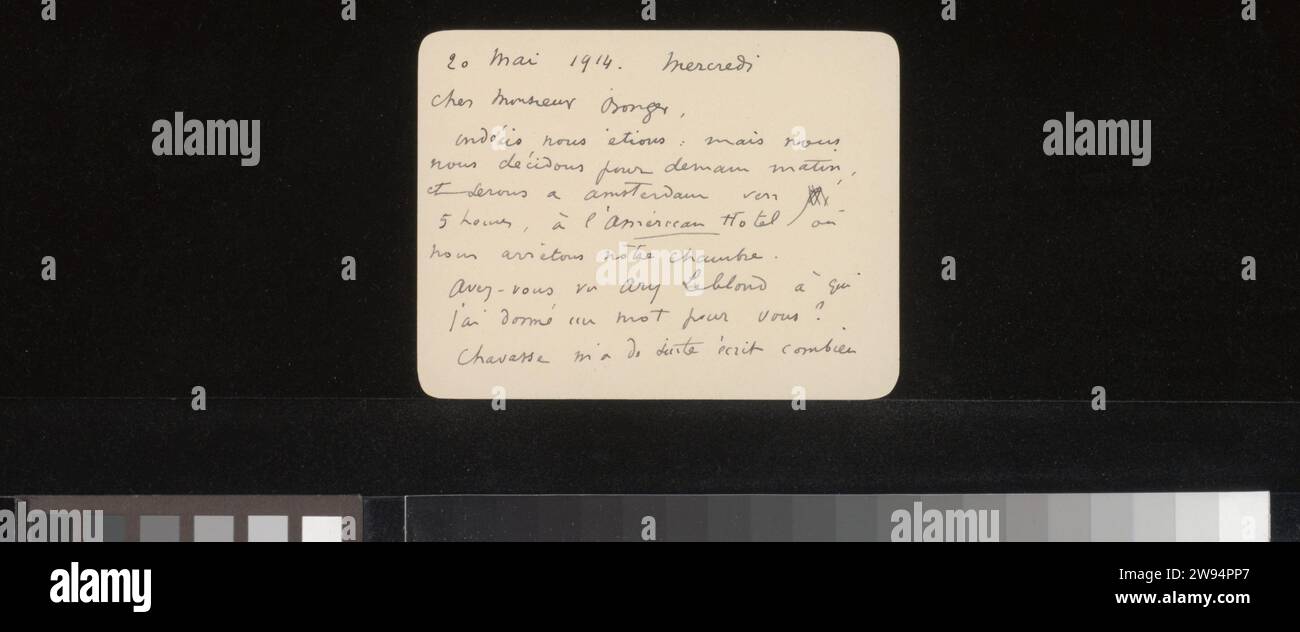 20 Mai 1914. Mercredi
Cher Monsieur Bonger,
indécis nous étions : mais nous
nous décidons pour demain matin,
et serons a amsterdam vers
5 heures, à l'American Hotel où
nous arrêtons nôtre chambre.
Avez-vous vu Ary Leblond à qui
j'ai donné un mot pour vous ?
Chavasse m'a de suite écrit combien
alamy
alamy
alamy
alamy
alamy
Image ID: 2W94PP7
www.alamy.com